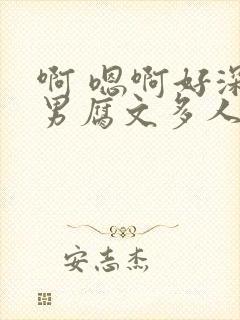 啊 嗯啊好深
男腐文多人
安志杰